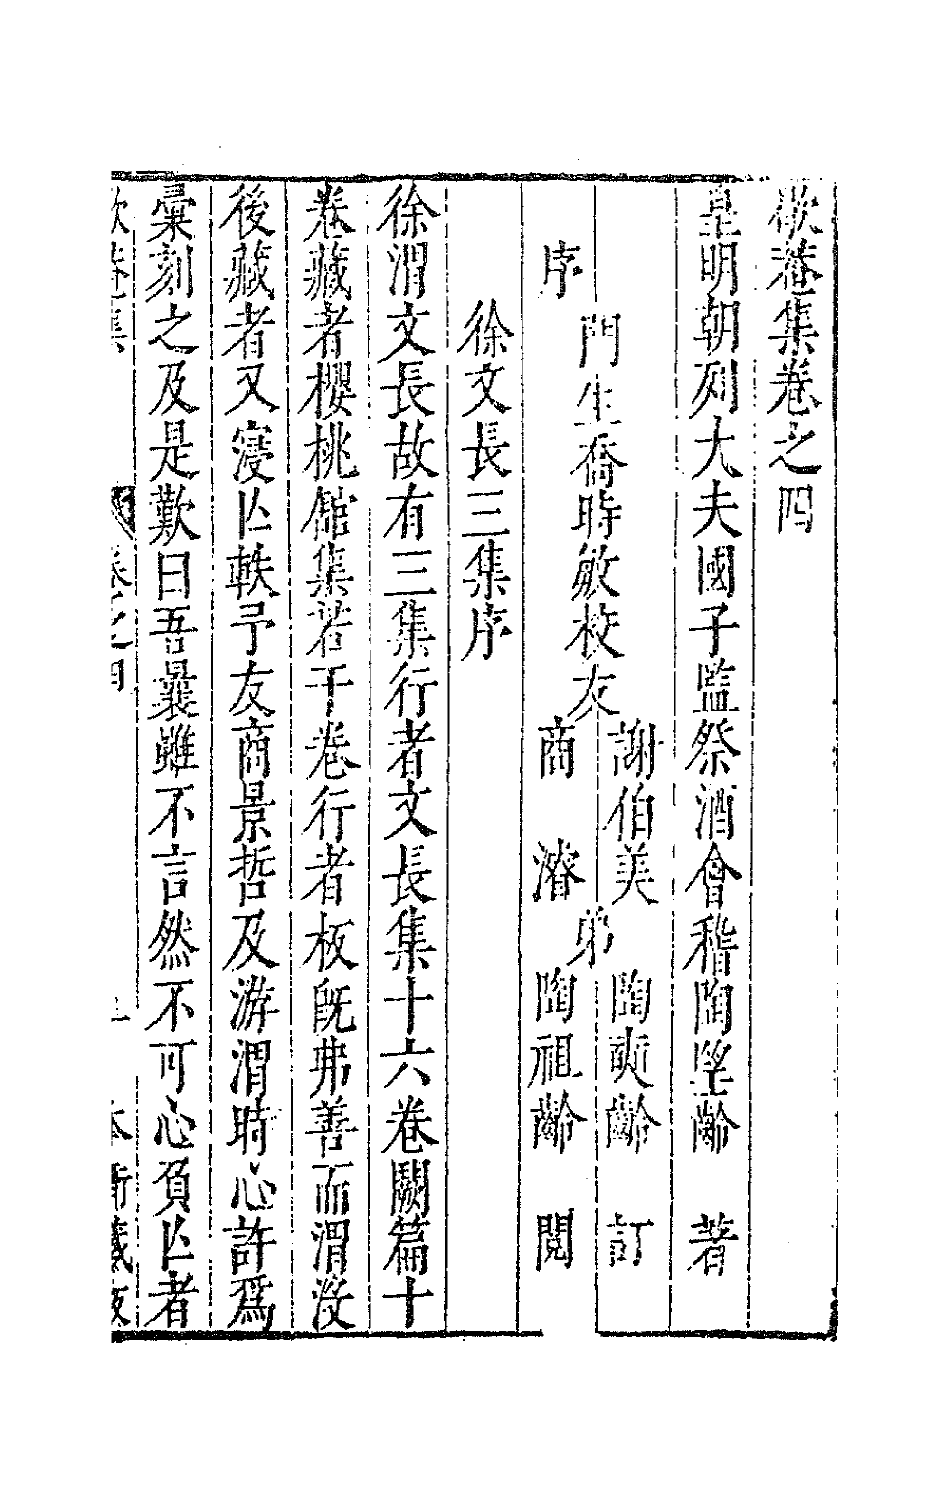 歇菴集卷之四
皇明朝列大夫國子監祭酒會稽陶望齡　著
門生喬時敏校友　謝伯美　商　濬　弟　陶奭齡　訂　陶祖齡　閱
序
徐文長三集序
徐渭文長故有三集行者文長集十六卷闕篇十
卷藏者櫻桃館集若干卷行者板旣弗善而渭沒
後藏者又寖亾軼予友商景哲及游渭時心許爲
彙刻之及是歎曰吾曩雖不言然不可心負亾者
歇菴集　卷之四　一　本衙藏板